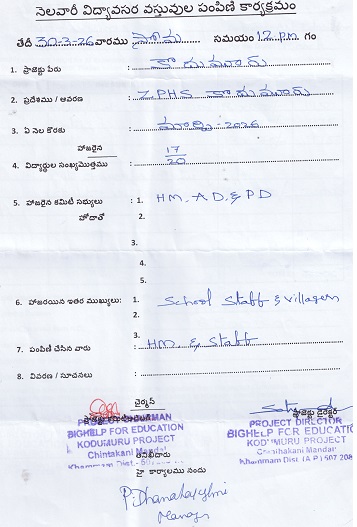 నెలవారీ విద్యావసర వస్తువుల పంపిణి కార్యక్రమం
తేదీ 30-3-26 వారము సోమ సమయం 12 p.m. గం
1. ప్రాజెక్టు పేరు : కొదుమూరు
2. ప్రదేశము / ఆవరణ : ZPHS కొదుమూరు
3. ఏ నెల కొరకు : మార్చి - 2026
హాజరైన 17
4. విద్యార్థుల సంఖ్య మొత్తము : 20
5. హాజరైన కమిటీ సభ్యులు : 1. HM, AD, & PD
హోదాతో 2.
3.
4.
5.
6. హాజరయిన ఇతర ముఖ్యులు: 1. School Staff & Villagers
2.
3.
7. పంపిణీ చేసిన వారు : HM, & Staff
8. వివరణ / సూచనలు :
ఛైర్మన్
ప్రాజెక్టు డైరెక్టర్
PROJECT CHAIRMAN
BIGHELP FOR EDUCATION
KODUMURU PROJECT
Chintakani Mandal
Khammam Dist - 507
PROJECT DIRECTOR
BIGHELP FOR EDUCATION
KODUMURU PROJECT
Chintakani Mandal
Khammam Dist. (A P) 507 208
హై కార్యాలము నందు
P. Dhanalakshmi
Manager